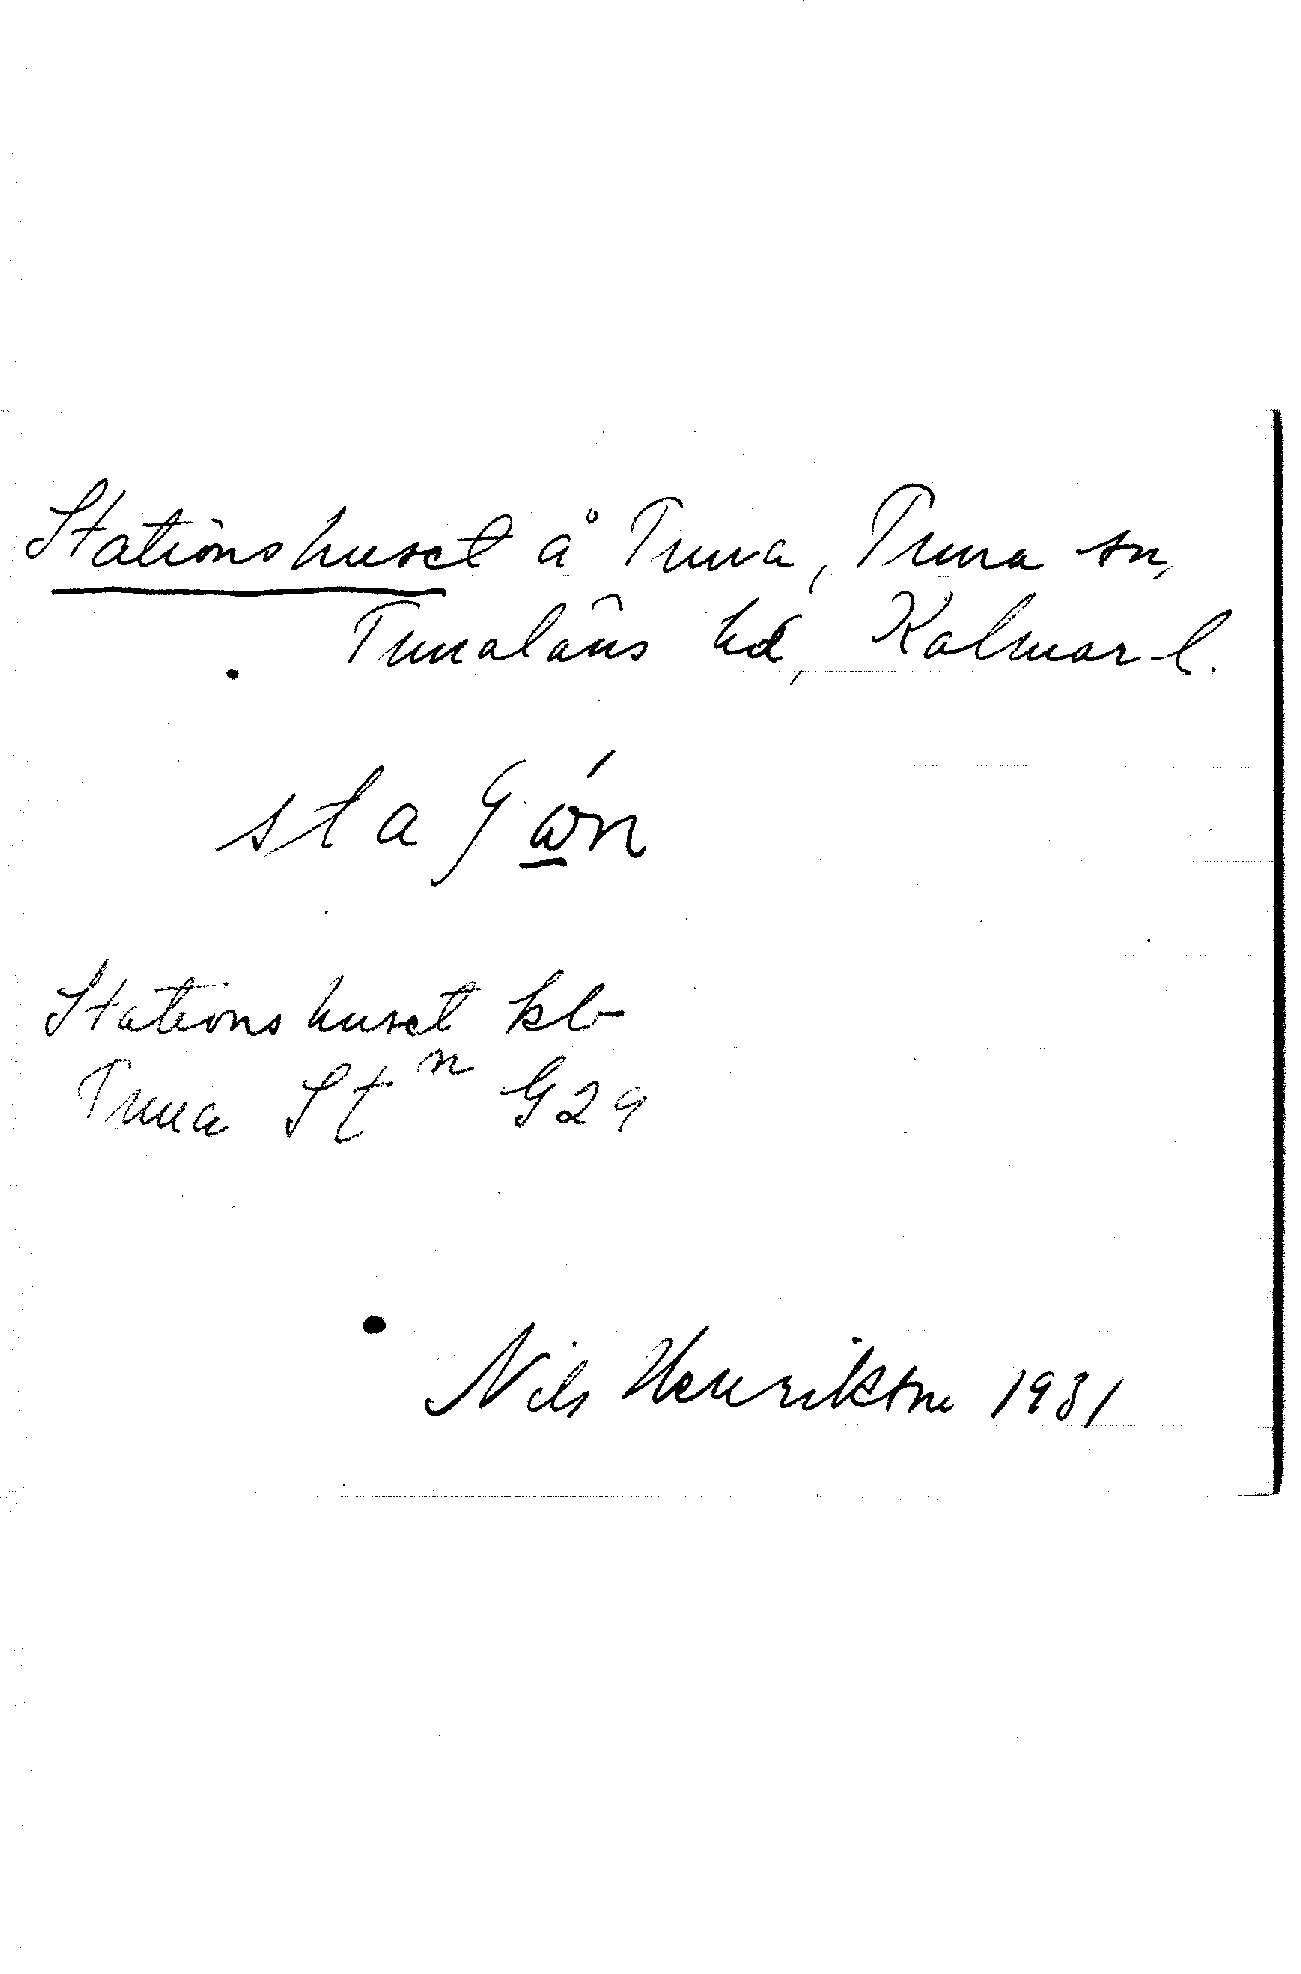 Stationshuset å Tuna, Tuna sn,
Tunaläns hd, Kalmar l.
Stationshuset kb
Tuna Stn G29
Nils Henrikson 1931